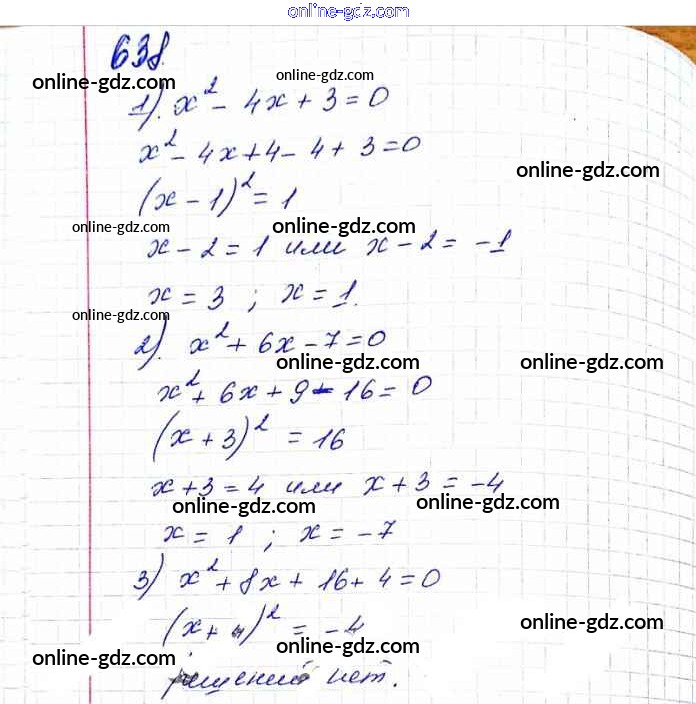 online-gdz.com
638.
online-gdz.com online-gdz.com
1). x² - 4x + 3 = 0
x² - 4x + 4 - 4 + 3 = 0
online-gdz.com
(x - 1)² = 1
online-gdz.com online-gdz.com
x - 2 = 1 или x - 2 = -1
x = 3 ; x = 1.
online-gdz.com
2). x² + 6x - 7 = 0
online-gdz.com online-gdz.com
x² + 6x + 9 - 16 = 0
(x + 3)² = 16
x + 3 = 4 или x + 3 = -4
online-gdz.com online-gdz.com
x = 1 ; x = -7
3) x² + 8x + 16 + 4 = 0
online-gdz.com
(x + 4)² = -4
online-gdz.com online-gdz.com
решений нет.